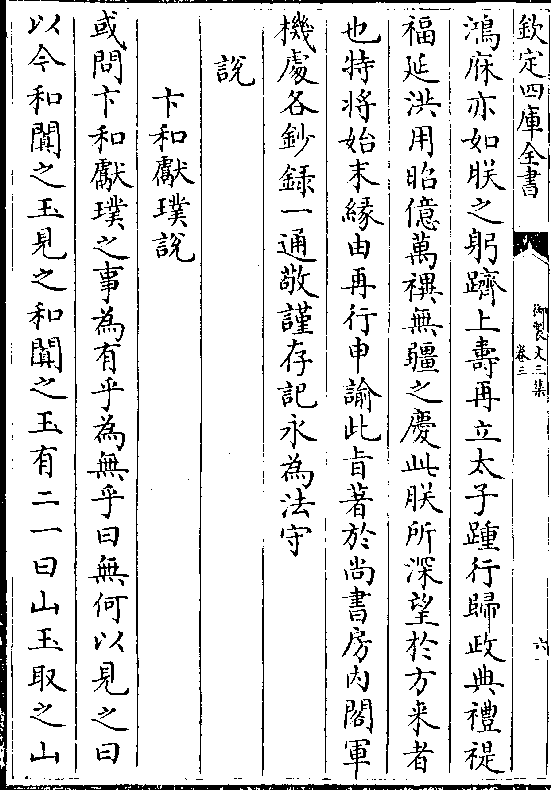 欽定四庫全書
御製文三集
卷三
六
鴻庥亦如朕之躬躋上壽再立太子踵行歸政典禮禔
福延洪用昭億萬禩無疆之慶此朕所深望於方来者
也特將始末緣由再行申諭此旨著於尚書房內閣軍
機處各鈔錄一通敬謹存記永為法守
說
卞和獻璞說
或問卞和獻璞之事為有乎為無乎曰無何以見之曰
以今和闐之玉見之和闐之玉有二一曰山玉取之山